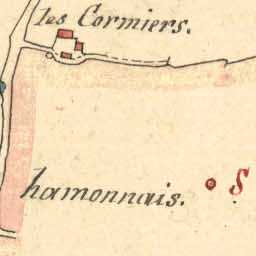 les Cormiers.
hamonnais.
S